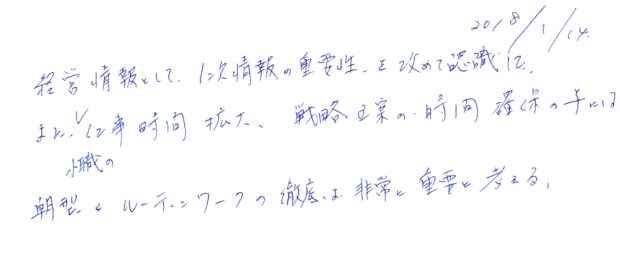 2018/1/14.
経営情報として、1次情報の重要性を改めて認識した。
また、仕事時間拡大、戦略立案の時間確保の為には
小職の
朝型とルーティンワークの徹底は非常に重要と考える。